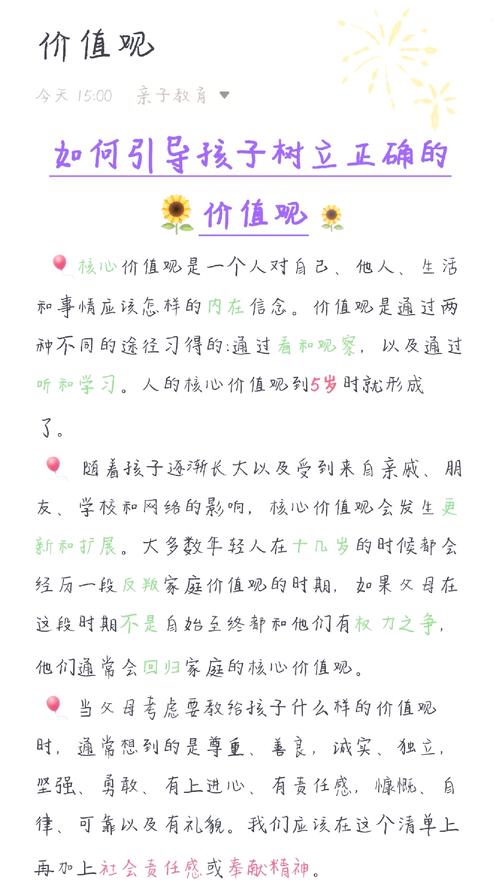 价值观
今天 15:00 亲子教育
如何引导孩子树立正确的
价值观
核心价值观是一个人对自己、他人、生活
和事情应该怎样的内在信念。价值观是通过两
种不同的途径习得的:通过看和观察，以及通过
听和学习。人的核心价值观到5岁时就形成
了。
随着孩子逐渐长大以及受到来自亲戚、朋
友、学校和网络的影响，核心价值观会发生更
新和扩展。大多数年轻人在十几岁的时候都会
经历一段反叛家庭价值观的时期，如果父母在
这段时期不是自始至终都和他们有权力之争，
他们通常会回归家庭的核心价值观。
当父母考虑要教给孩子什么样的价值观
时，通常想到的是尊重、善良，诚实、独立，
坚强、勇敢、有上进心、有责任感，慷慨、自
律、可靠以及有礼貌。我们应该在这个清单上
再加上社会责任感或奉献精神。